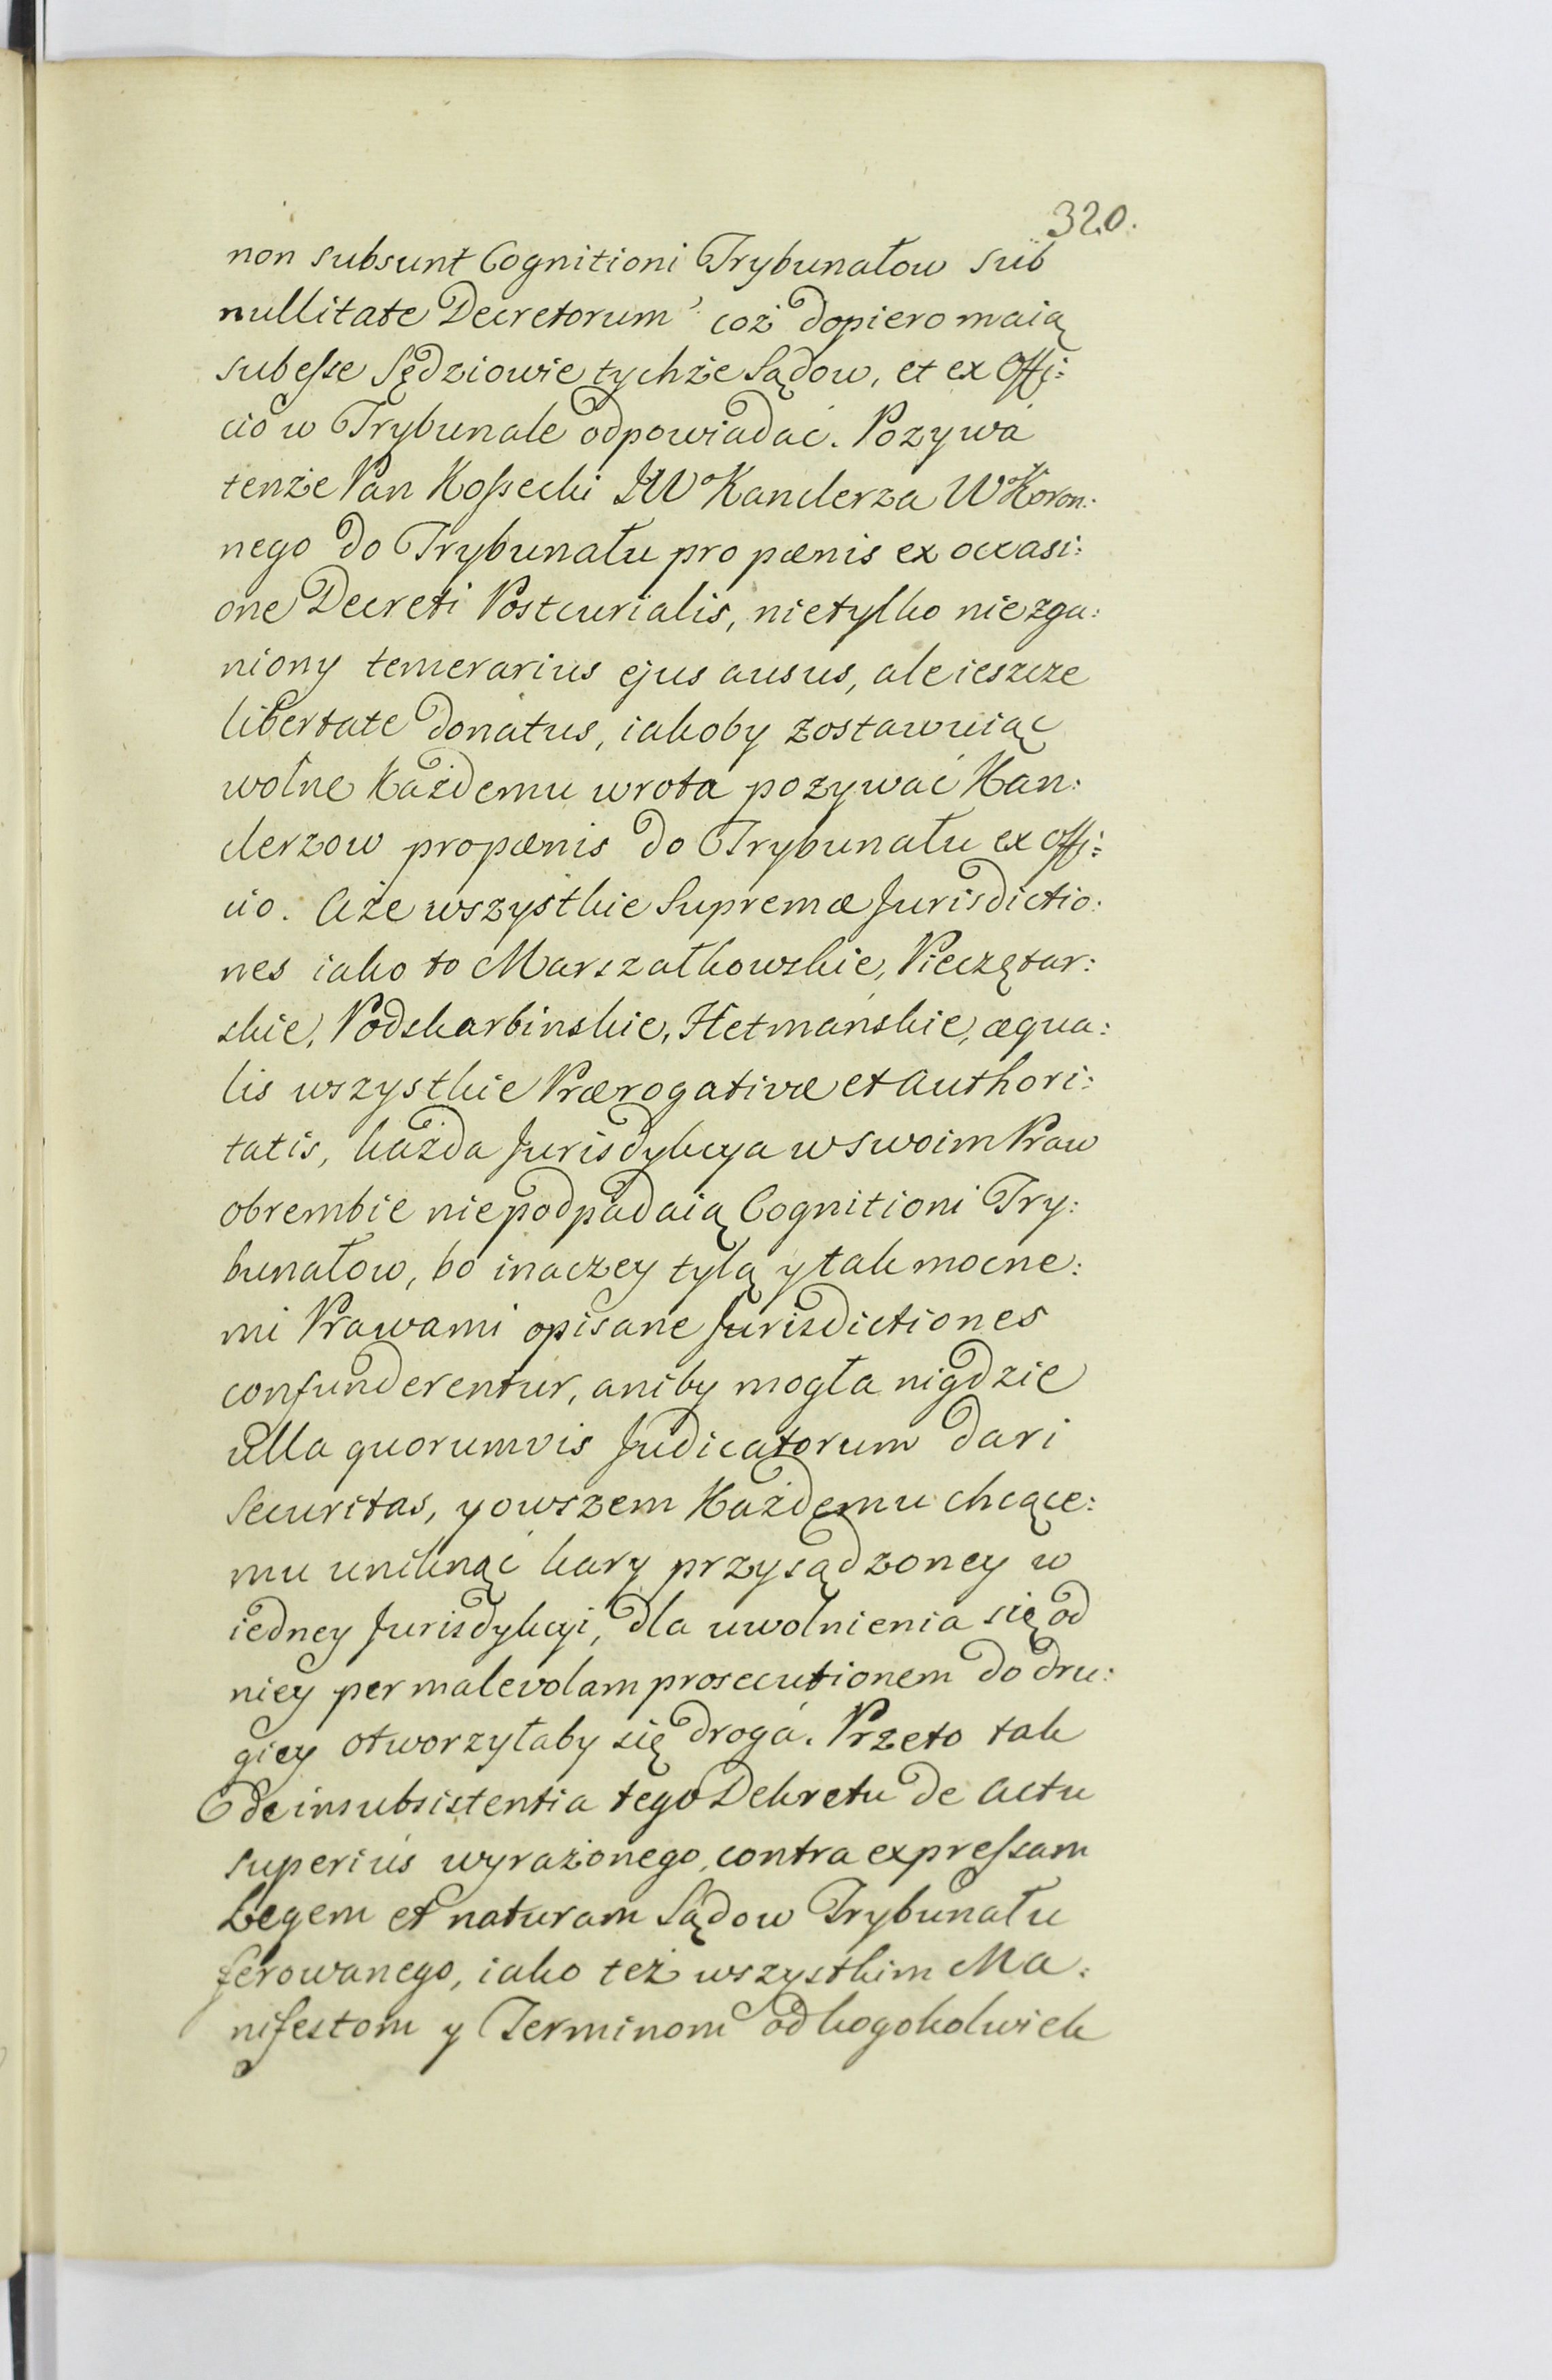 320.
non subsunt Cognitioni Trybunałow sub
nullitate Decretorum coż dopiero maią
subeſse Sędziowie tychże Sądow, et ex Offi:
cio w Trybunale odpowiadać. Pozywa
tenże Pan Koſsecki JW Kanclerza W Koron:
nego do Trybunału pro pœnis ex occasi:
one Decreti Postcurialis, nietylko niezga:
niony temerarius ejus ausus, ale ieszcze
libertate donatus, iakoby zostawuiąc
wolne każdemu wrota pozywać Kan:
clerzow pro pœnis do Trybunału ex offi:
cio. Aże wszystkie Supremæ Jurisdictio:
nes iako to Marszałkowskie, Pieczętar:
skie, Podskarbinskie, Hetmańskie, æqua:
lis wszystkie Prærogativæ et Authori:
tatis, każda Jurisdykcya w swoim Praw
obrembie niepodpadaią Cognitioni Try:
bunałow, bo inaczey tylą y tak mocne:
mi Prawami opisane Jurisdictiones
confunderentur, aniby mogła nigdzie
ulla quorumvis Judicatorum dari
Securitas, y owszem Każdemu chcące:
mu uniknąć kary przysądzoney w
iedney Jurisdykcyi, dla uwolnienia się od
niey per malevolam prosecutionem do dru:
giey otworzyłaby się droga. Przeto tak
de insubsistentia tego Dekretu de actu
superius wyrażonego, contra expreſsam
Legem et naturam Sądow Trybunału
ferowanego, iako też wszystkim Ma:
nifestom y Terminom od kogokolwiek